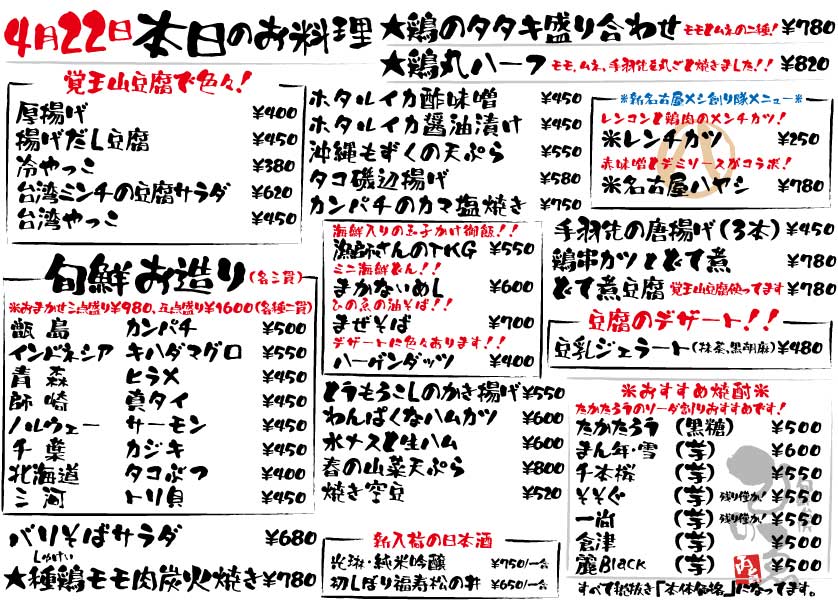 4月22日 本日のお料理
★鶏のタタキ盛り合わせ モモとムネの二種! ¥780
★鶏丸ハーフ モモ、ムネ、手羽先を丸ごと焼きました!! ¥820
覚王山豆腐で色々!
厚揚げ ¥400
揚げだし豆腐 ¥450
冷やっこ ¥380
台湾ミンチの豆腐サラダ ¥620
台湾やっこ ¥450
旬鮮お造り (各三貫)
※おまかせ三点盛り¥980、五点盛り¥1600(各種二貫)
甑島 カンパチ ¥500
インドネシア キハダマグロ ¥550
青森 ヒラメ ¥450
師崎 真タイ ¥450
ノルウェー サーモン ¥450
千葉 カジキ ¥450
北海道 タコぶつ ¥400
三河 トリ貝 ¥450
バリそばサラダ ¥680
しゅけい
★種鶏モモ肉炭火焼き ¥780
ホタルイカ酢味噌 ¥450
ホタルイカ醤油漬け ¥450
沖縄もずくの天ぷら ¥550
タコ磯辺揚げ ¥580
カンパチのカマ塩焼き ¥750
海鮮入りの玉子かけ御飯!!
漁師さんのTKG ¥550
ミニ海鮮どん!!
まかないめし ¥600
ひの魚の油そば!!
まぜそば ¥700
デザートに色々あります!!
ハーゲンダッツ ¥400
とうもろこしのかき揚げ ¥550
わんぱくなハムカツ ¥600
水ナスと生ハム ¥600
春の山菜天ぷら ¥800
焼き空豆 ¥520
新入荷の日本酒
光琳・純米吟醸 ¥750/一合
初しぼり福寿松の井 ¥650/一合
※新名古屋メシ創り隊メニュー※
レンコンと鶏肉のメンチカツ!
※レンチカツ ¥250
赤味噌とデミソースがコラボ!
※名古屋ハヤシ ¥780
手羽先の唐揚げ(3本) ¥450
鶏串カツとどて煮 ¥780
どて煮豆腐 覚王山豆腐使ってます ¥780
豆腐のデザート!!
豆乳ジェラート(抹茶、黒胡麻) ¥480
※おすすめ焼酎※
たかたろうのソーダ割りおすすめです!
たかたろう (黒糖) ¥500
まん年・雪 (芋) ¥600
千本桜 (芋) ¥550
そそぐ (芋) 残り僅か! ¥550
一尚 (芋) 残り僅か! ¥550
倉津 (芋) ¥550
麗Black (芋) ¥500
すべて税抜き「本体価格」になってます。